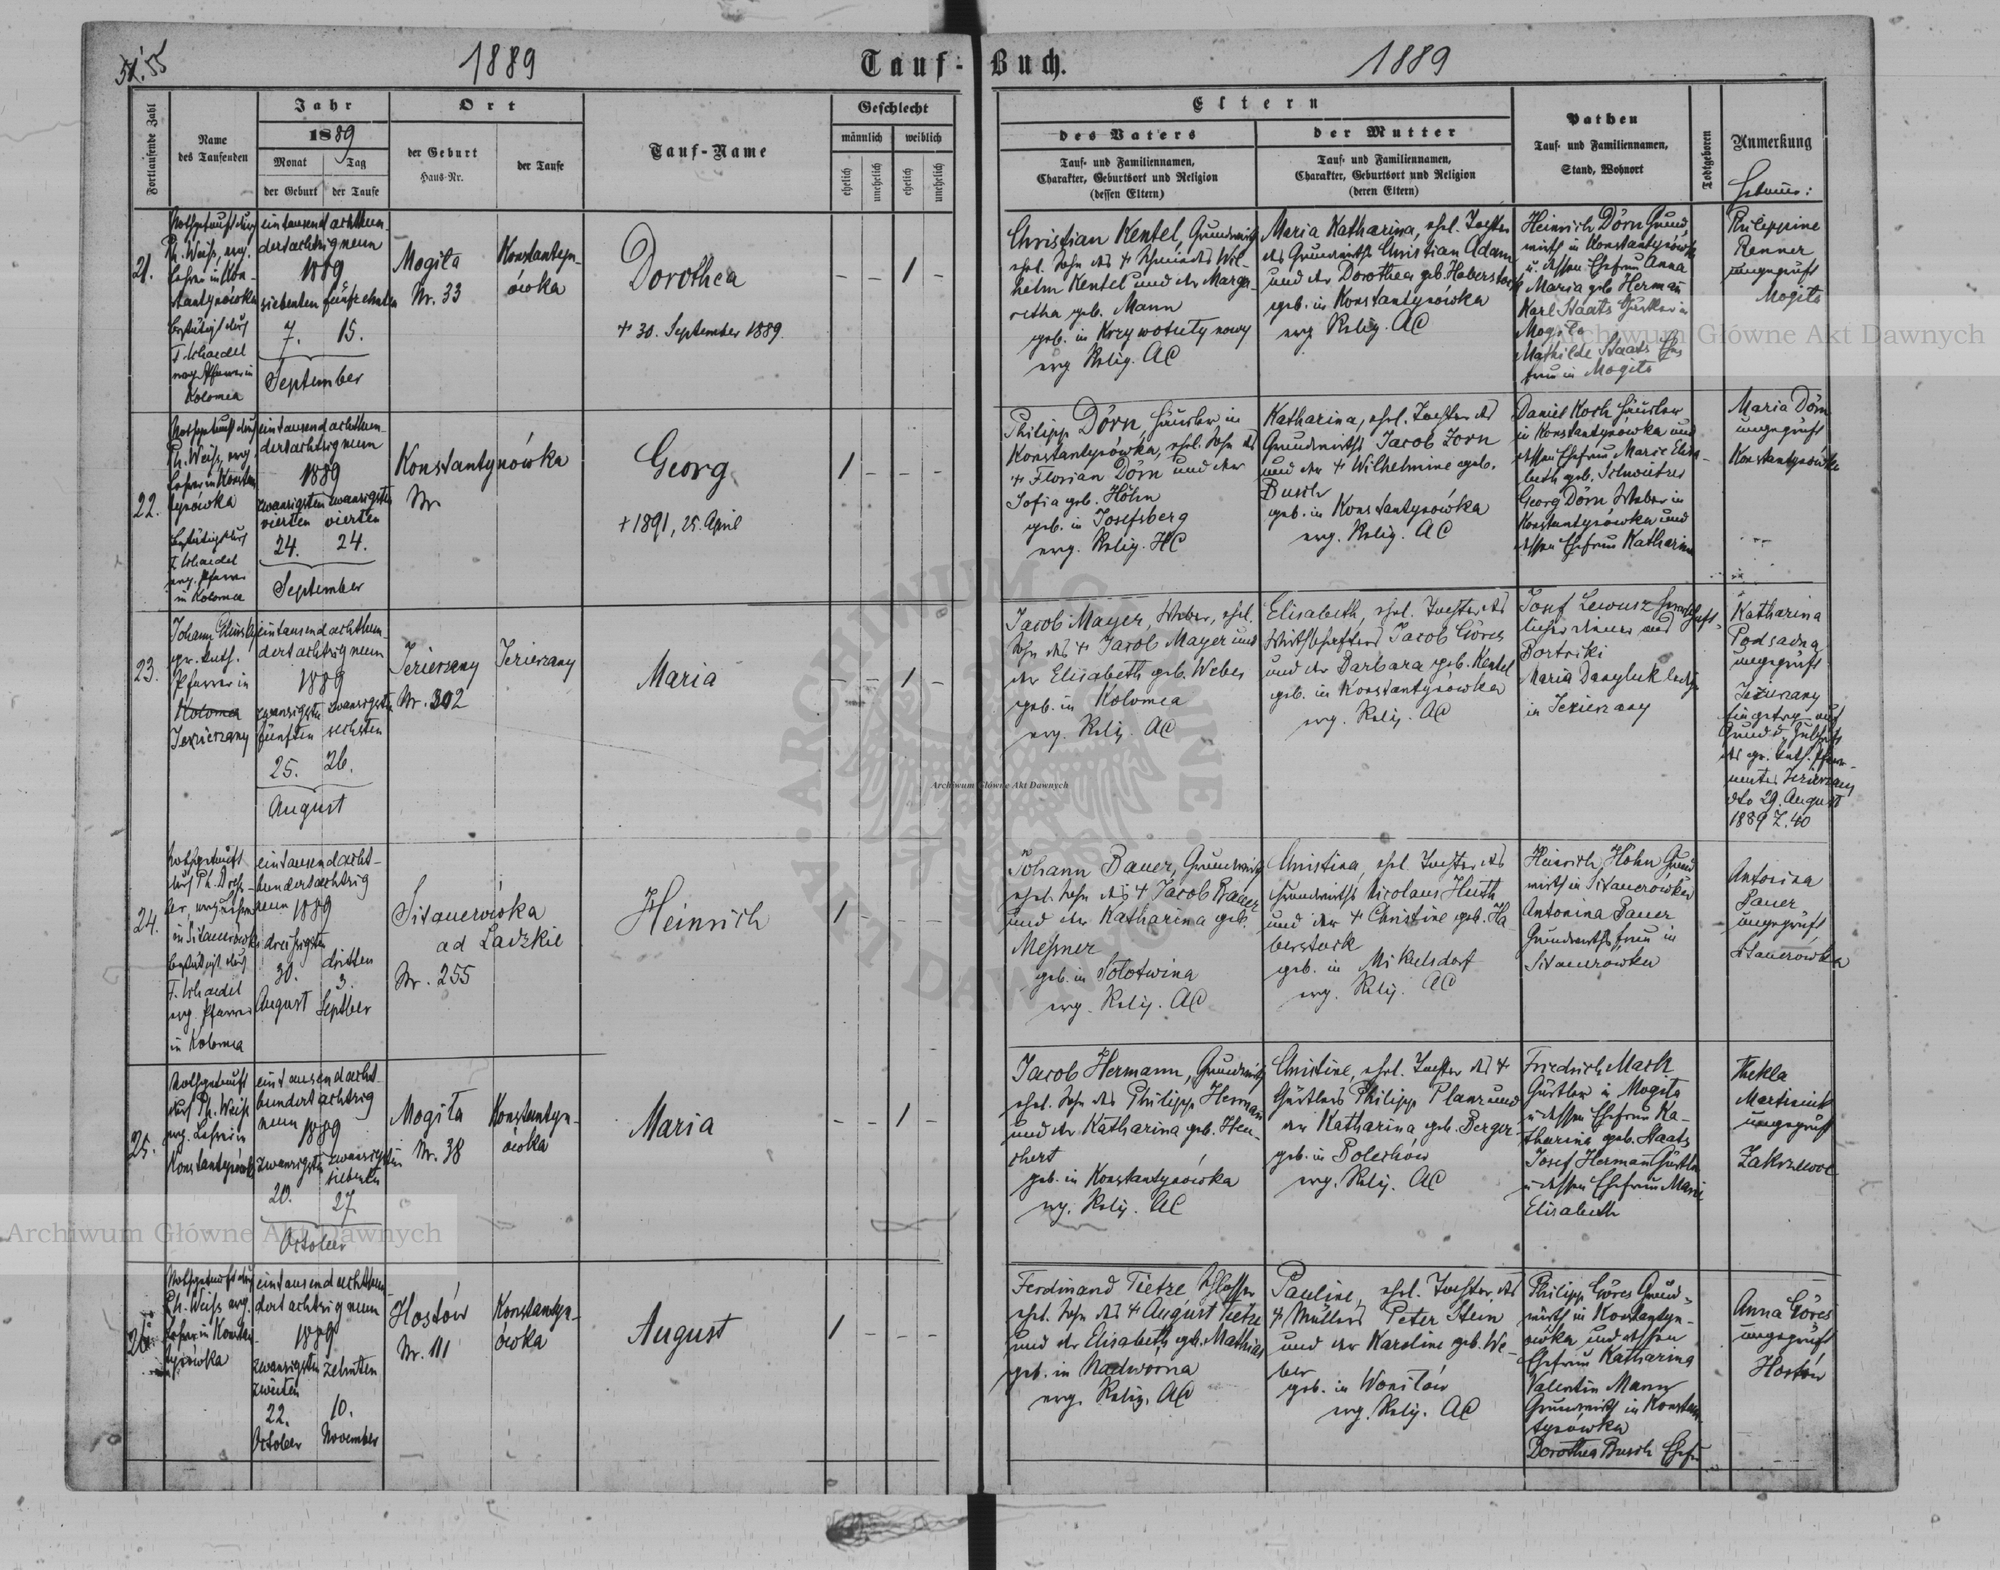 51. 55
1889
Tauf-Buch.
1889
Fortlaufende Zahl
Name
des Taufenden
Jahr
1889
Monat Tag
der Geburt der Taufe
Ort
der Geburt
Haus-Nr.
der Taufe
Tauf-Name
Geschlecht
männlich weiblich
ehelich unehelich ehelich unehelich
Eltern
des Vaters
Tauf- und Familiennamen,
Charakter, Geburtsort und Religion
(dessen Eltern)
der Mutter
Tauf- und Familiennamen,
Charakter, Geburtsort und Religion
(deren Eltern)
Pathen
Tauf- und Familiennamen,
Stand, Wohnort
Todtgeboren
Anmerkung
Hebamme:
21.
Nothgetauft durch
Ph. Weiss, evg.
Lehrer in Kon-
stantynówka
bestätigt durch
evg. Pfarrer in
Kolomea
eintausend achthun-
dertachtzigneun
1889
siebenten fünfzehnten
7. 15.
September
Mogiła
Nr. 33
Konstantyn-
ówka
Dorothea
+ 30. September 1889.
– – 1 –
Christian Kentel, Grundwirth
ehel. Sohn des + Schmiedes Wil-
helm Kentel und der Marga-
retha geb. Mann
geb. in
evg. Relig. AC
Maria Katharina, ehel. Tochter
des Grundwirths Christian Adam
und der Dorothea geb. Haberstock
geb. in Konstantynówka
evg. Relig. AC
Heinrich Dörn Grund-
wirth in Konstantynówka
u. dessen Ehefrau Anna
Maria geb. Herman
Karl Staats Gürtler in
Mogiła
Mathilde Staats Ehe
frau in Mogiła
Philippine
Renner
ungeprüft
Mogiła
22.
Nothgetauft durch
Ph. Weiss, evg.
Lehrer in Konstan
tynówka
bestätigt durch
evg. Pfarrer
in Kolomea
eintausend achthun-
dertachtzigneun
1889
zwanzigsten zwanzigsten
vierten vierten
24. 24.
September
Konstantynówka
Nr
Georg
+ 1891, 25. April
1 – – –
Philipp Dörn, Häusler in
Konstantynówka, ehel. Sohn des
+ Florian Dörn und der
Sofia geb. Höhn
geb. in Josefsberg
evg. Relig. HC
Katharina, ehel. Tochter des
Grundwirths Jacob Zorn
und der + Wilhelmine geb.
Busch
geb. in Konstantynówka
evg. Relig. AC
Daniel Koch Häusler
in Konstantynowka und
dessen Ehefrau Marie Elisa-
beth geb.
Georg Dörn Weber in
Konstantynówka und
dessen Ehefrau Katharina
Maria Dörn
ungeprüft
Konstantynówka
23.
Johann
gr. kath.
Pfarrer in
Kolomea
Jezierzany
eintausend achthun-
dertachtzigneun
1889
zwanzigsten zwanzigsten
fünften sechsten
25. 26.
August
Jezierzany
Nr. 302
Jezierzany
Maria
– – 1 –
Jacob Mayer, Weber, ehel.
Sohn des + Jacob Mayer und
der Elisabeth geb. Weber
geb. in Kolomea
evg. Relig. AC
Elisabeth, ehel. Tochter des
Wirthschafters Jacob Göres
und der Barbara geb. Kentel
geb. in Konstantynówka
evg. Relig. AC
Josef Lewusz herrschaft-
licher Diener aus
Bortniki
Maria Danyluk ledig
in Jezierzany
Katharina
Podsadna
ungeprüft
Jezierzany
Eingetrg. auf
Grund d. Zuschrift
des gr. kath. Pfarr-
amtes Jezierzany
dto 29. August
1889 Z. 40
24.
Nothgetauft
durch Ph.
in Sitauerówka
bestätigt durch
evg. Pfarrer
in Kolomea
eintausendacht-
hundertachtzig
neun 1889
dreissigsten dritten
30. 3.
August Septber
Sitauerówka
ad Ladzkie
Nr. 255
Heinrich
1 – – –
Johann Bauer, Grundwirth
ehel. Sohn des + Jacob Bauer
und der Katharina geb.
Messner
geb. in Solotwina
evg. Relig. AC
Christina, ehel. Tochter des
Grundwirths Nicolaus Huth
und der + Christine geb. Ha-
berstock
geb. in Mikulsdorf
evg. Relig. AC
Heinrich Hohn Grund
wirth in Sitauerówka
Antonina Bauer
Grundwirthsfrau in
Sitauerówka
Antonina
Bauer
ungeprüft
Sitauerówka
25.
Nothgetauft
durch Ph. Weiss
evg. Lehrer in
Konstantynówka
eintausendacht-
hundertachtzig
neun 1889
zwanzigsten zwanzigsten
siebenten
20. 27.
October
Mogiła
Nr. 38
Konstantyn-
ówka
Maria
– – 1 –
Jacob Hermann, Grundwirth
ehel. Sohn des Philipp Herman
und der Katharina geb. Hen-
chert
geb. in Konstantynówka
evg. Relig. AC
Christine, ehel. Tochter des +
Gürtlers Philipp Planz und
der Katharina geb. Berger
geb. in Bolechów
evg. Relig. AC
Friedrich Mack
Gürtler in Mogiła
u. dessen Ehefrau Ka-
tharina geb. Staats
Josef Hermann Gürtler
u. dessen Ehefrau Marie
Elisabeth
Thekla
Martiniuk
ungeprüft
Zakrzewce
26.
Nothgetauft durch
Ph. Weiss evg.
Lehrer in Konstan
tynówka
eintausend achthun-
dertachtzigneun
1889
zwanzigsten zehnten
zweiten
22. 10.
October November
Hostów
Nr. 111
Konstantyn-
ówka
August
1 – – –
Ferdinand Tietze Schlosser
ehel. Sohn des + August Tietze
und der Elisabeth geb. Mathias
geb. in Nadworna
evg. Relig. AC
Pauline, ehel. Tochter des
+ Müllers Peter Stein
und der Karoline geb. We-
ber
geb. in
evg. Relig. AC
Philipp Göres Grund-
wirth in Konstantyn-
ówka und dessen
Ehefrau Katharina
Valentin Mann
Grundwirth in Konstan
tynówka
Dorothea Busch Ehefr
Anna Göres
ungeprüft
Hostów
Archiwum Główne Akt Dawnych
Archiwum Główne Akt Dawnych
Archiwum Główne Akt Dawnych
ARCHIWUM GŁÓWNE AKT DAWNYCH